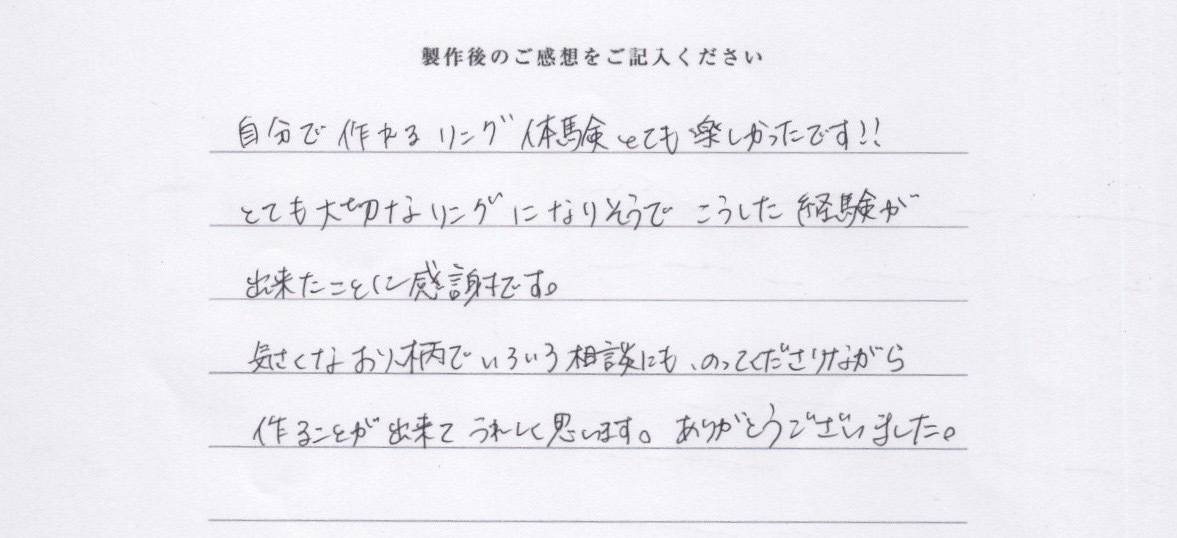 製作後のご感想をご記入ください
自分で作れるリング体験とても楽しかったです!!
とても大切なリングになりそうで こうした経験が
出来たことに感謝です。
気さくなお人柄でいろいろ相談にも、のってくださりながら
作ることが出来てうれしく思います。ありがとうございました。